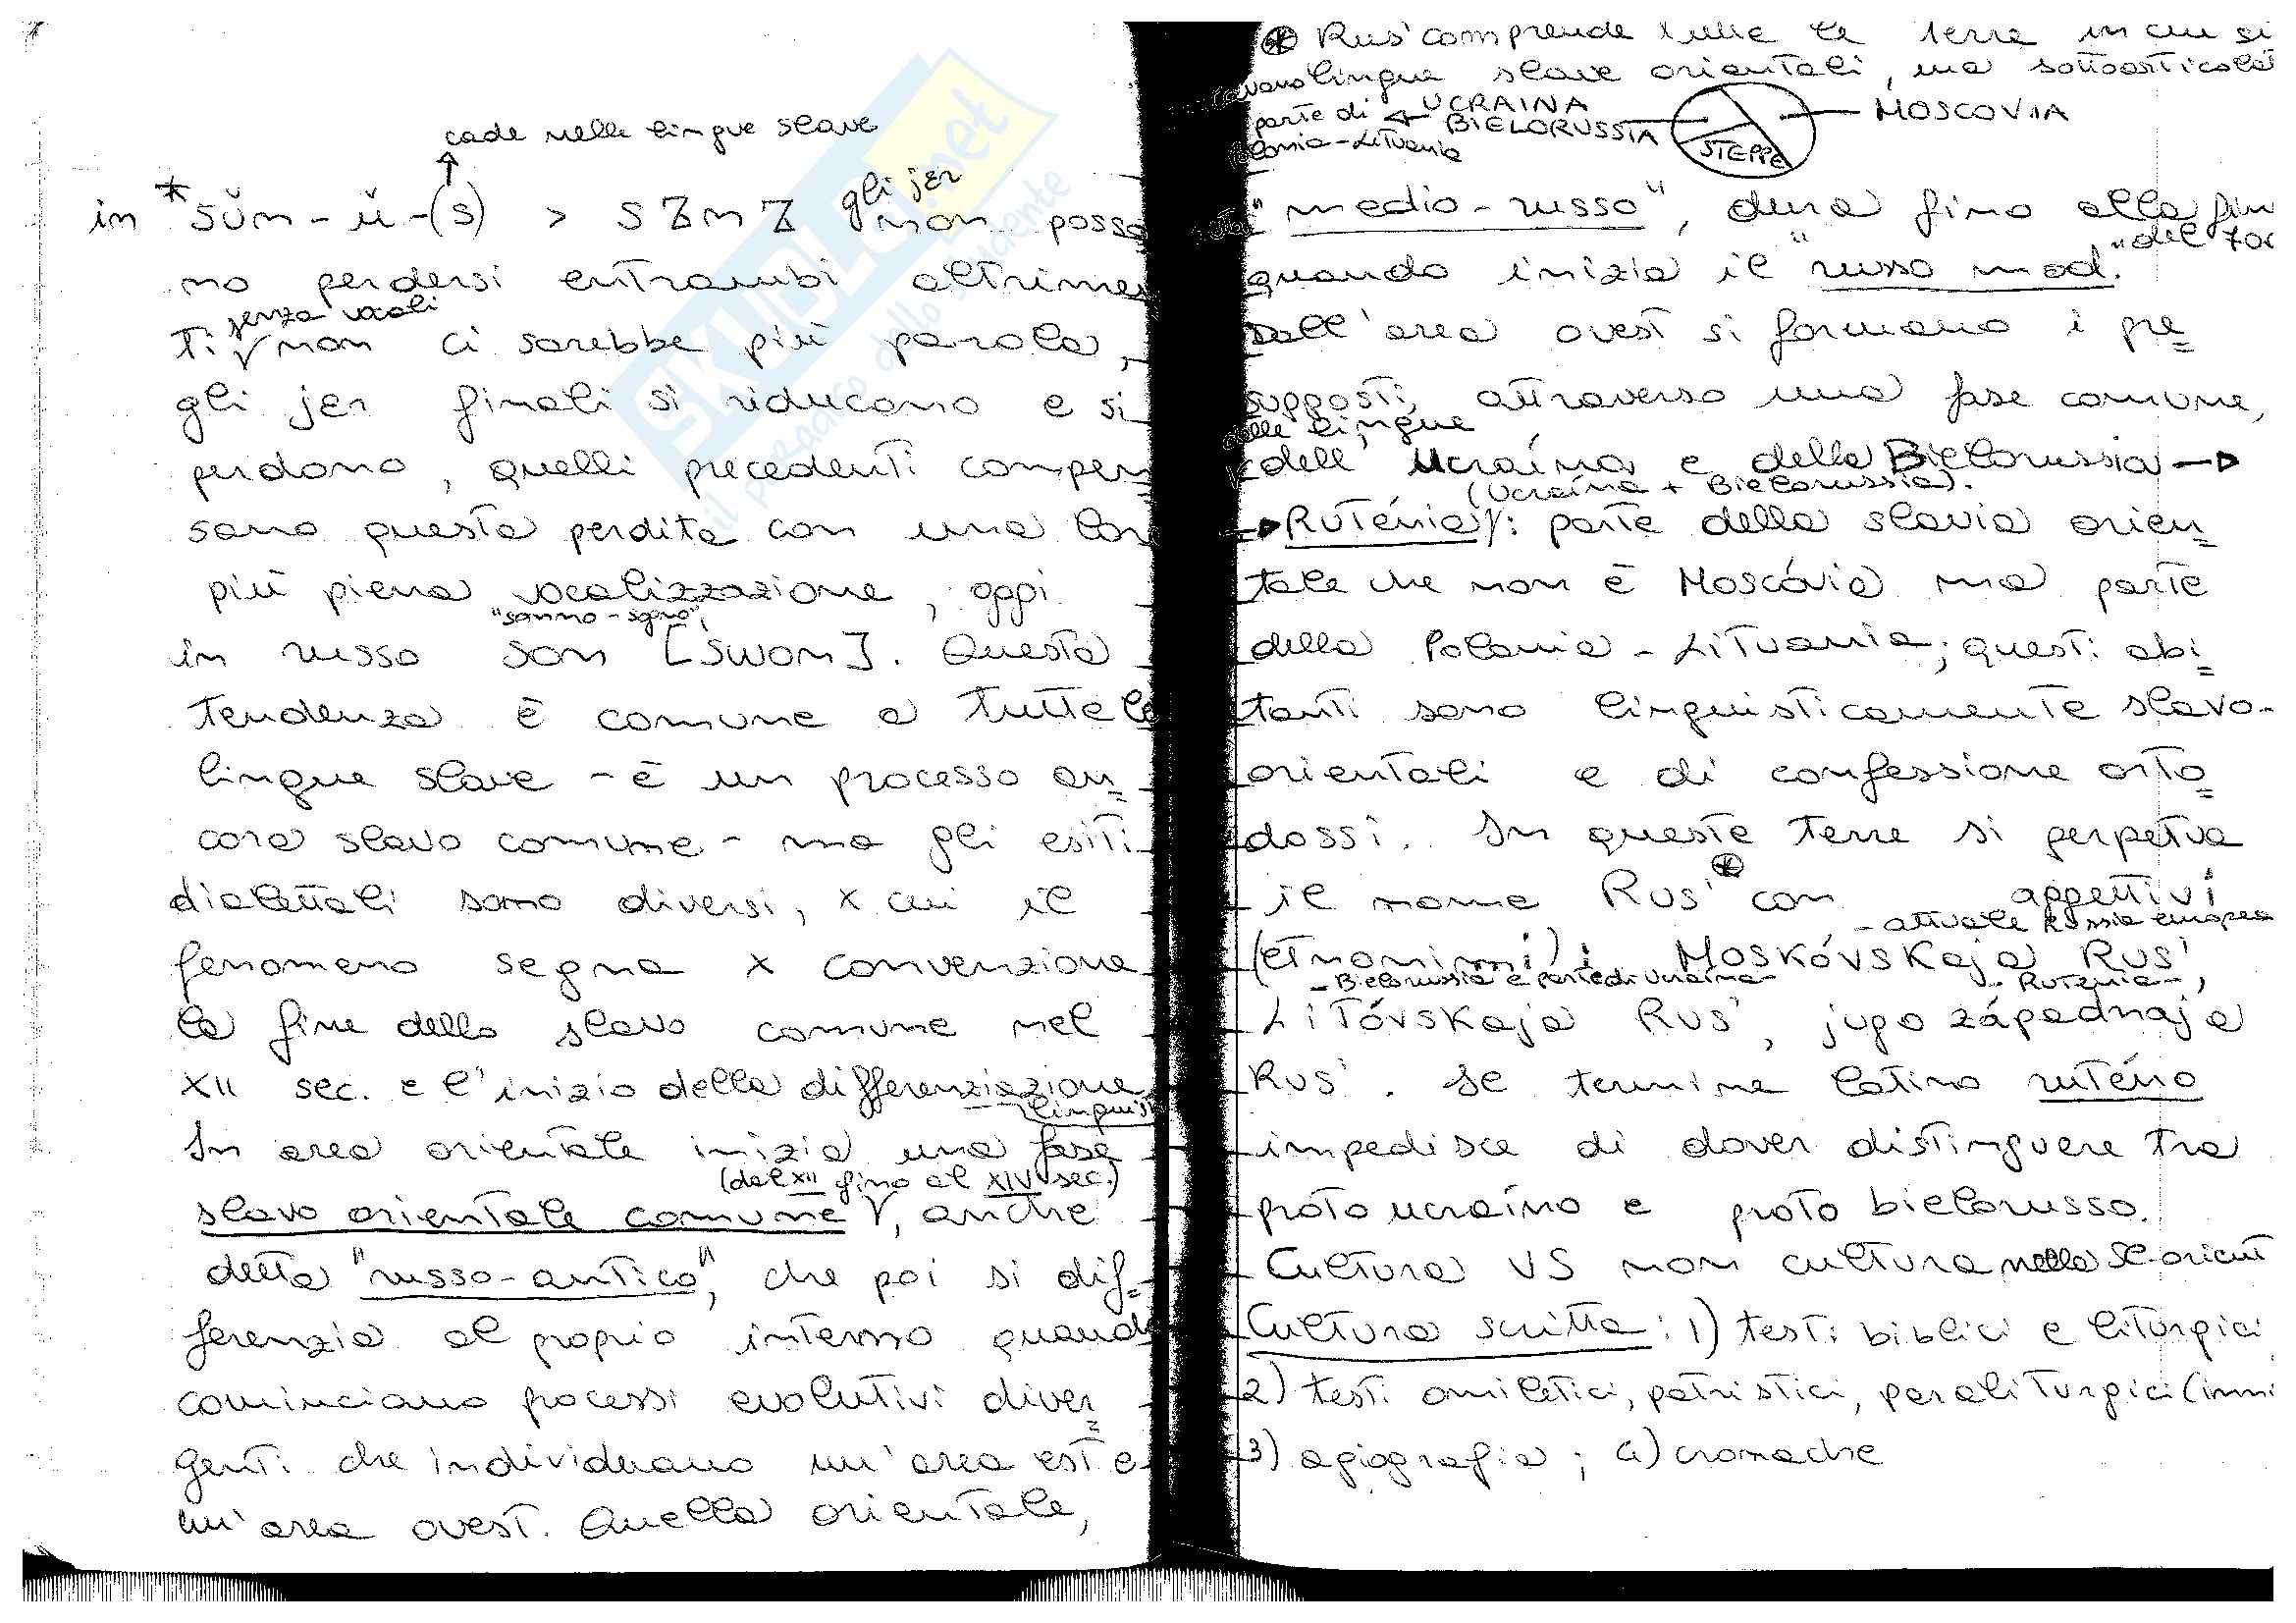 cade nelle lingue slave
in *sŭm-ŭ-(s) > sъmъ gli jer non posso
no perdersi entrambi altrimen
ti senza vocali non ci sarebbe più parola,
gli jer finali si riducono e si
perdono, quelli precedenti compen
sano questa perdita con una loro
più piena vocalizzazione, oggi
"sonno-sogno",
in russo son [swon]. Questa
tendenza è comune a tutte le
lingue slave - è un processo an=
cora slavo comune - ma gli esiti
dialettali sono diversi, x cui il
fenomeno segna x convenzione
la fine dello slavo comune nel
XII sec. e l'inizio della differenziazione
linguist
In area orientale inizia una fase
(dal XII fino al XIV sec.)
slavo orientale comune, anche
detta "russo-antico", che poi si dif=
ferenzia al proprio interno quando
cominciano processi evolutivi diver=
genti che individuano un'area est e
un'area ovest. Quella orientale,
Rus' comprende tutte le terre in cui si
lingue slave orientali, ma sottoarticola
parte di ← UCRAINA
BIELORUSSIA
Polonia-Lituania
STEPPE
MOSCOVIA
"medio-russo", dura fino alla fin
del '700
quando inizia il "russo mod."
Dall'area ovest si formano i pre=
supposti, attraverso una fase comune,
delle lingue
dell'Ucraína e della Bielorussia →
(Ucraína + Bielorussia).
→ Ruténia: parte della slavia orien=
tale che non è Moscóvia ma parte
della Polonia-Lituania; questi abi=
tanti sono linguisticamente slavo-
orientali e di confessione orto=
dossi. In queste terre si perpetua
il nome Rus' con aggettivi
- attuale Russia europea
(etnonimi): Moskóvskaja Rus'
- Bielorussia e parte di Ucraína -
- Rutenia -,
Litóvskaja Rus', jugo západnaja
Rus'. Il termine latino ruténo
impedisce di dover distinguere tra
proto ucraíno e proto bielorusso.
Cultura VS non cultura nella Sl. orient
Cultura scritta: 1) testi biblici e liturgici
2) testi omiletici, patristici, paraliturgici (inni
3) agiografia; 4) cronache
SKUOLA.net
il portadico dello studente